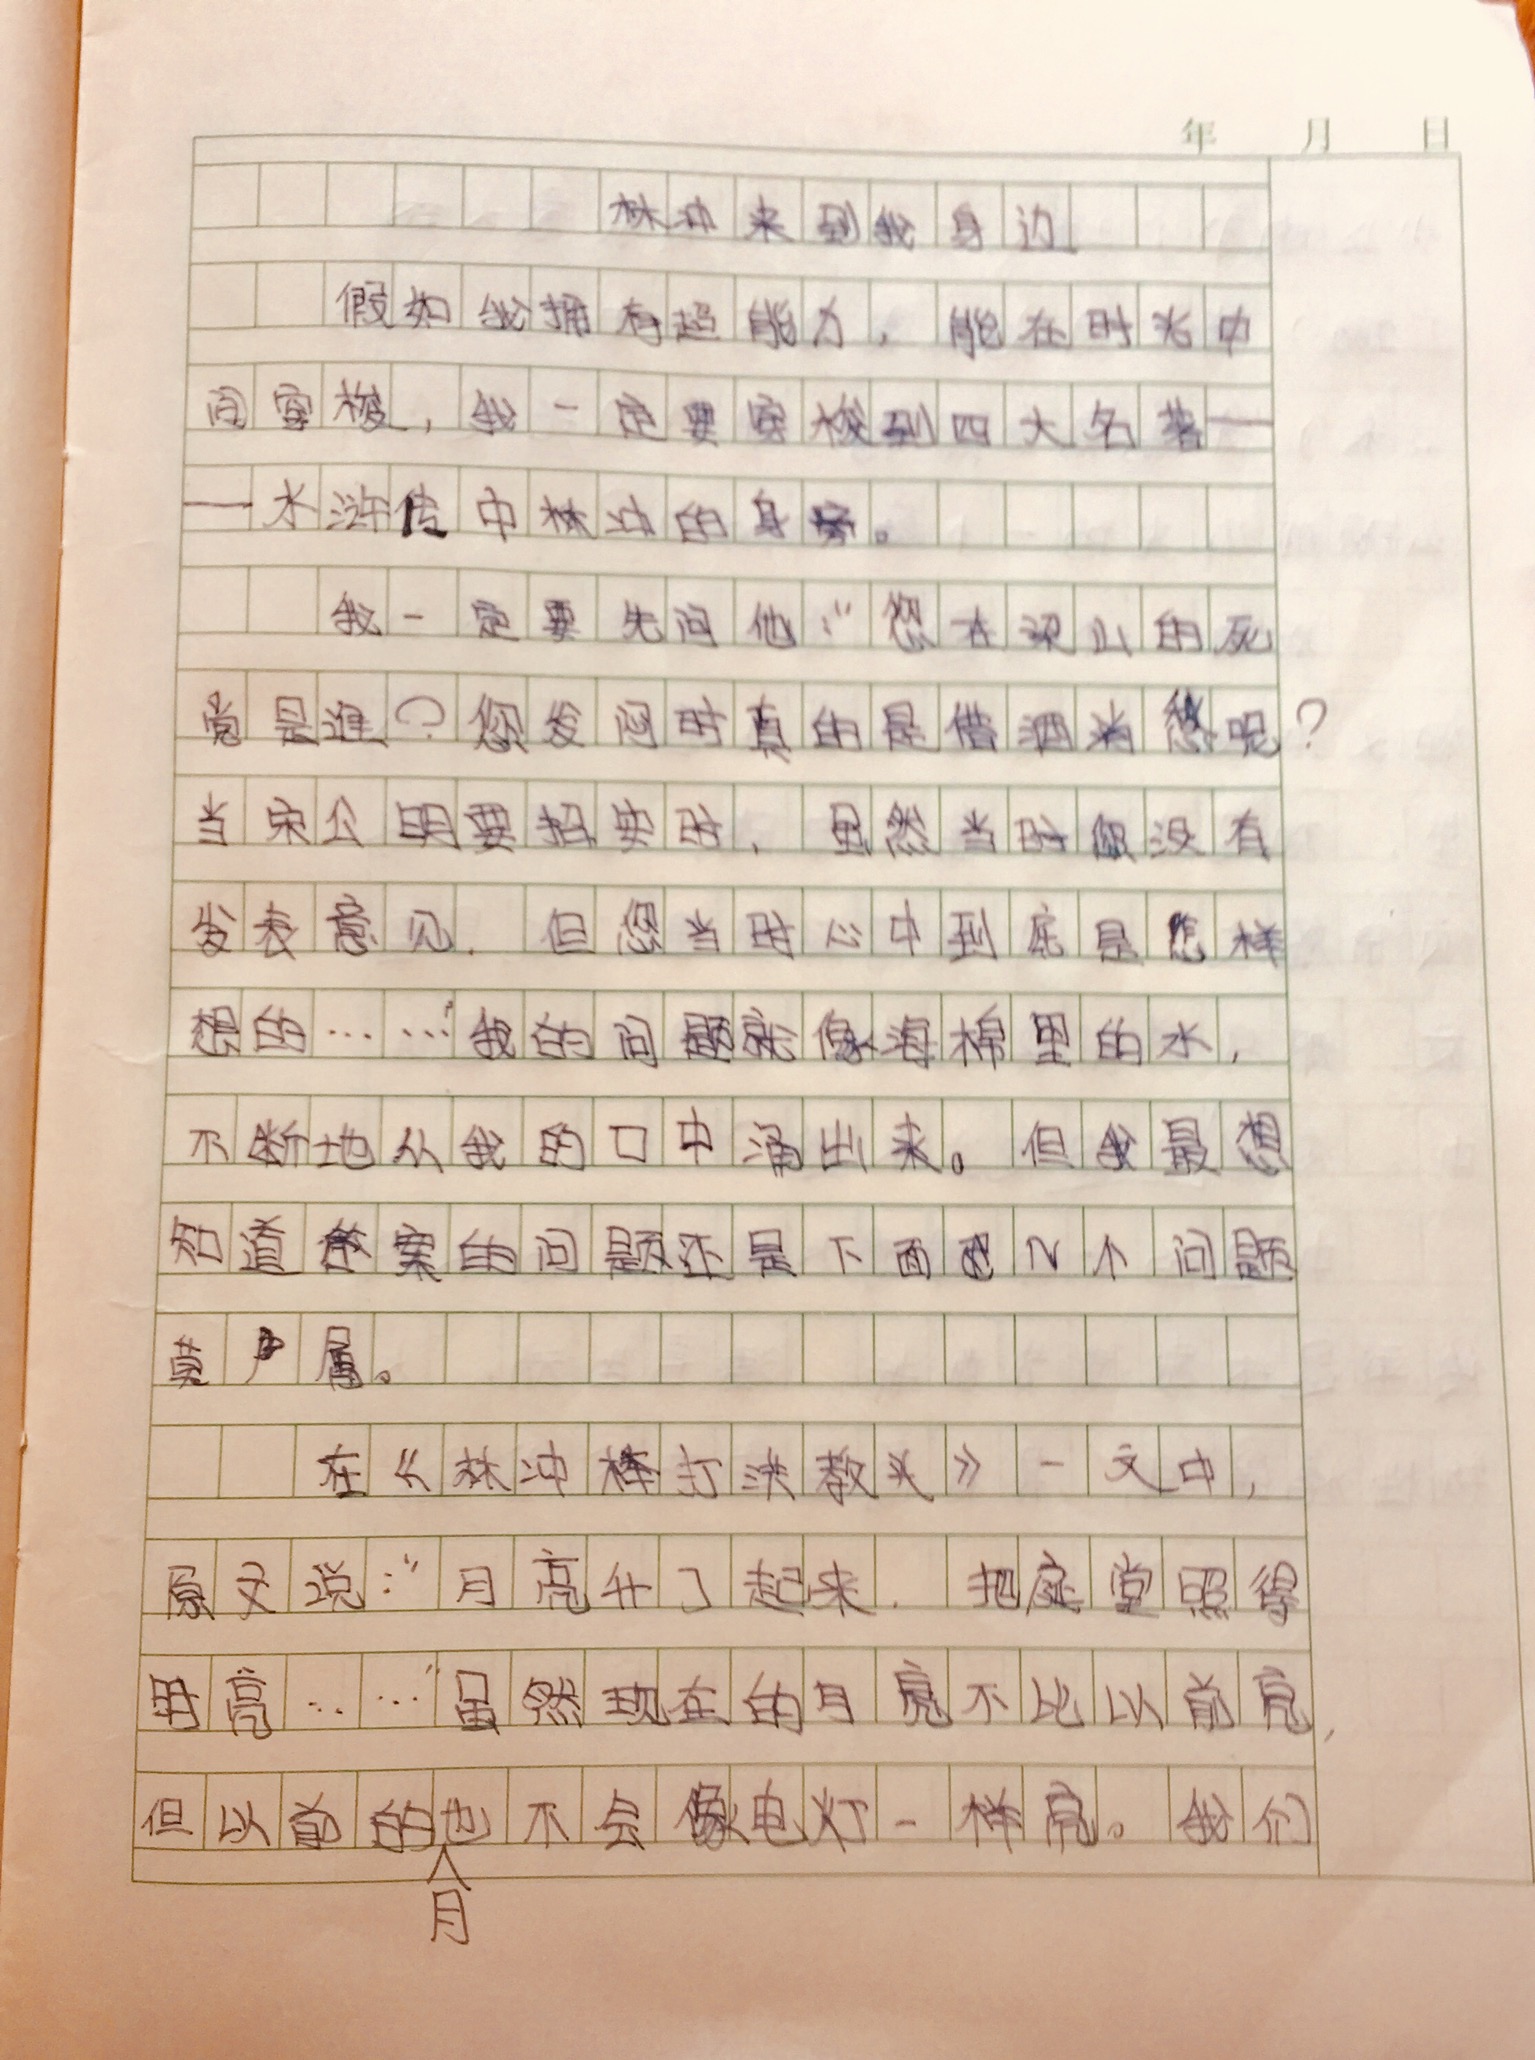 年 月 日
林冲来到我身边
假如我拥有超能力，能在时光中
间穿梭，我一定要穿梭到四大名著—
—水浒传中林冲的身旁。
我一定要先问他：“您在梁山的死
党是谁？您发闷时真的是借酒消愁呢？
当宋公明要招安时，虽然当时您没有
发表意见，但您当时心中到底是怎样
想的……”我的问题就像海绵里的水，
不断地从我的口中涌出来。但我最想
知道答案的问题还是下面这几个问题
莫户属。
在《林冲棒打洪教头》一文中，
原文说：“月亮升了起来，把庭堂照得
明亮……”虽然现在的月亮不比以前亮，
但以前的月也不会像电灯一样亮。我们